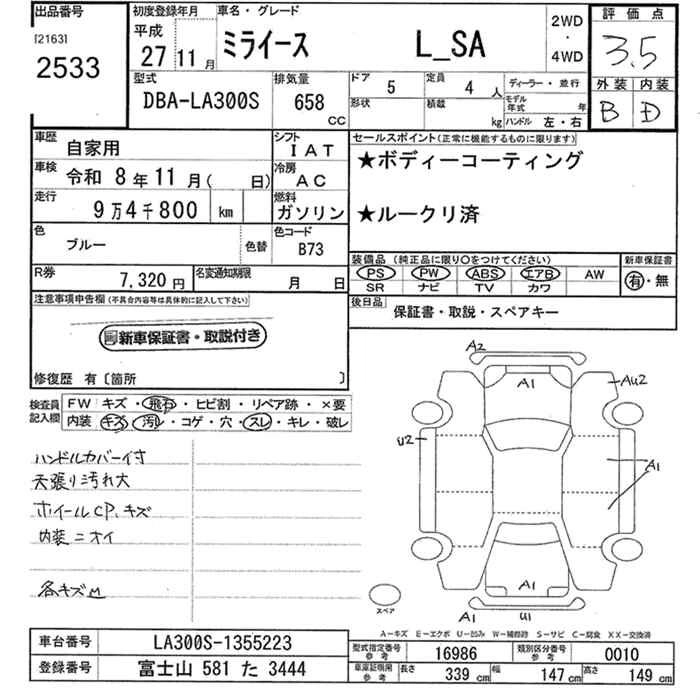 出品番号
[2163]
2533
初度登録年月
平成
27 11 月
車名・グレード
ミライース L_SA
2WD
・
4WD
評価点
3.5
外装 内装
B D
型式
DBA-LA300S
排気量
658
CC
ドア 5
定員 4 人
ディーラー・並行
形状
積載 kg
モデル年式 年
ハンドル 左・右
車歴 自家用
シフト IAT
車検 令和 8 年 11 月( 日)
冷房 AC
走行 9 万 4 千 800 km
燃料 ガソリン
色 ブルー
色替
色コード B73
R券 7,320 円
名変通知期限 月 日
セールスポイント(正常に機能するものに限ります)
★ボディーコーティング
★ルークリ済
装備品 (純正品に限り〇をつけてください)
PS PW ABS エアB AW
SR ナビ TV カワ
新車保証書
有・無
後日品 保証書・取説・スペアキー
注意事項申告欄(不具合内容等は具体的に記入して下さい)
新車保証書・取説付き
修復歴 有〔箇所 〕
検査員記入欄
FW キズ・飛石・ヒビ割・リペア跡・×要
内装 キズ・汚レ・コゲ・穴・スレ・キレ・破レ
ハンドルカバー付
天張り汚れ大
ホイールCP、キズ
内装ニオイ
各キズM
A2
A1
AU2
U2
A1
A1
A1
U1
スペア
A－キズ E－エクボ U－凹み W－補修跡 S－サビ C－腐食 XX－交換済
車台番号 LA300S-1355223
登録番号 富士山 581 た 3444
型式指定番号 参考 16986
類別区分番号 参考 0010
車庫証明用 参考 長さ 339 cm 幅 147 cm 高さ 149 cm